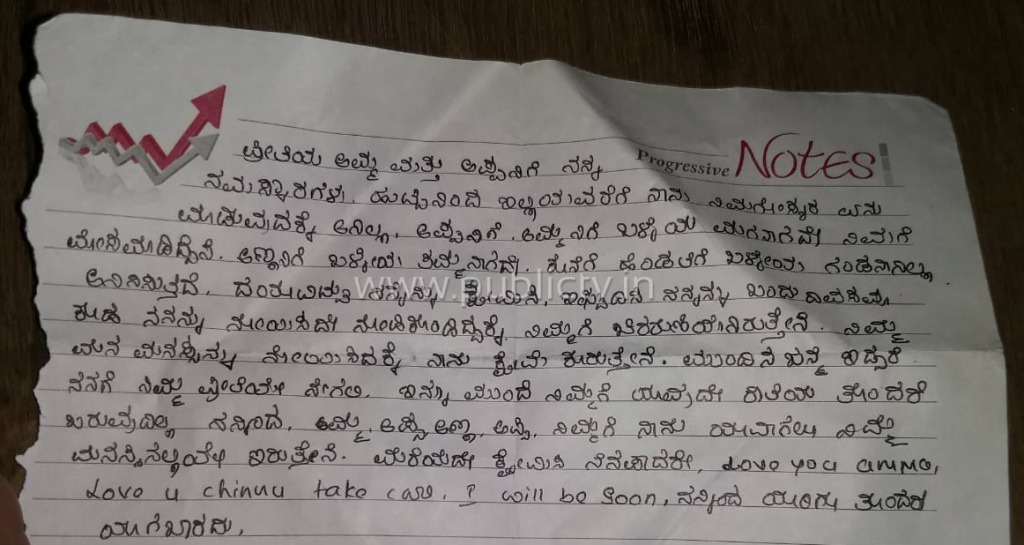 Progressive Notes
ಪ್ರೀತಿಯ ಅಮ್ಮ ಮತ್ತು ಅಪ್ಪನಿಗೆ ನನ್ನ
ನಮಸ್ಕಾರಗಳು. ಹುಟ್ಟಿನಿಂದ ಇಲ್ಲಿಯವರೆಗೆ ನಾನು ನಿಮಗೋಸ್ಕರ ಏನು
ಮಾಡುವುದಕ್ಕೆ ಆಗಿಲ್ಲ. ಅಪ್ಪನಿಗೆ ಅಮ್ಮನಿಗೆ ಒಳ್ಳೆಯ ಮಗನಾಗದೇ ನಿಮಗೆ
ಮೋಸಮಾಡಿದ್ದೇನೆ. ಅಣ್ಣನಿಗೆ ಒಳ್ಳೆಯ ತಮ್ಮನಾಗದೇ. ಹೆಂಡತಿಗೆ ಒಳ್ಳೆಯ ಗಂಡನಾಗಿಲ್ಲ
ಅನಿಸುತ್ತದೆ. ದಯವಿಟ್ಟು ನನ್ನನ್ನು ಕ್ಷಮಿಸಿ, ಇಷ್ಟುದಿನ ನನ್ನನ್ನು ಒಂದು ದಿವಸವೂ
ಕೂಡ ನನನ್ನು ನೋಯಿಸದೇ ನೋಡಿಕೊಂಡಿದ್ದಕ್ಕೆ ನಿಮ್ಮಗೆ ಚಿರಋಣಿಯಾಗಿರುತ್ತೇನೆ. ನಿಮ್ಮ
ಮನ ಮನಸ್ಸನ್ನು ನೋಯಿಸಿದಕ್ಕೆ ನಾನು ಕ್ಷಮೆ ಕೋರುತ್ತೇನೆ. ಮುಂದಿನ ಜನ್ಮ ಇದ್ದರೆ
ನನಗೆ ನಿಮ್ಮ ಪ್ರೀತಿಯೇ ಸಿಗಲಿ. ಇನ್ನು ಮುಂದೆ ನಿಮ್ಮಗೆ ಯಾವುದೇ ರೀತಿಯ ತೊಂದರೆ
ಬರುವುದಿಲ್ಲ ನನ್ನಿಂದ. ಅಮ್ಮ, ಅಪ್ಪ, ಅಣ್ಣ, ನಿಮ್ಮಗೆ ನಾನು ಯಾವಾಗಲು ನಿಮ್ಮ
ಮನಸ್ಸಿನಲ್ಲಿಯೇ ಇರುತ್ತೇನೆ. ಮರೆಯದೇ ಕ್ಷಮಿಸಿ ನೆನಪಾದರೇ, Love you amma,
Love u chinnu take care, I will be soon, ನನ್ನಿಂದ ಯಾರಿಗು ತೊಂದರೆ
ಯಾಗಬಾರದು.
www.publictv.in